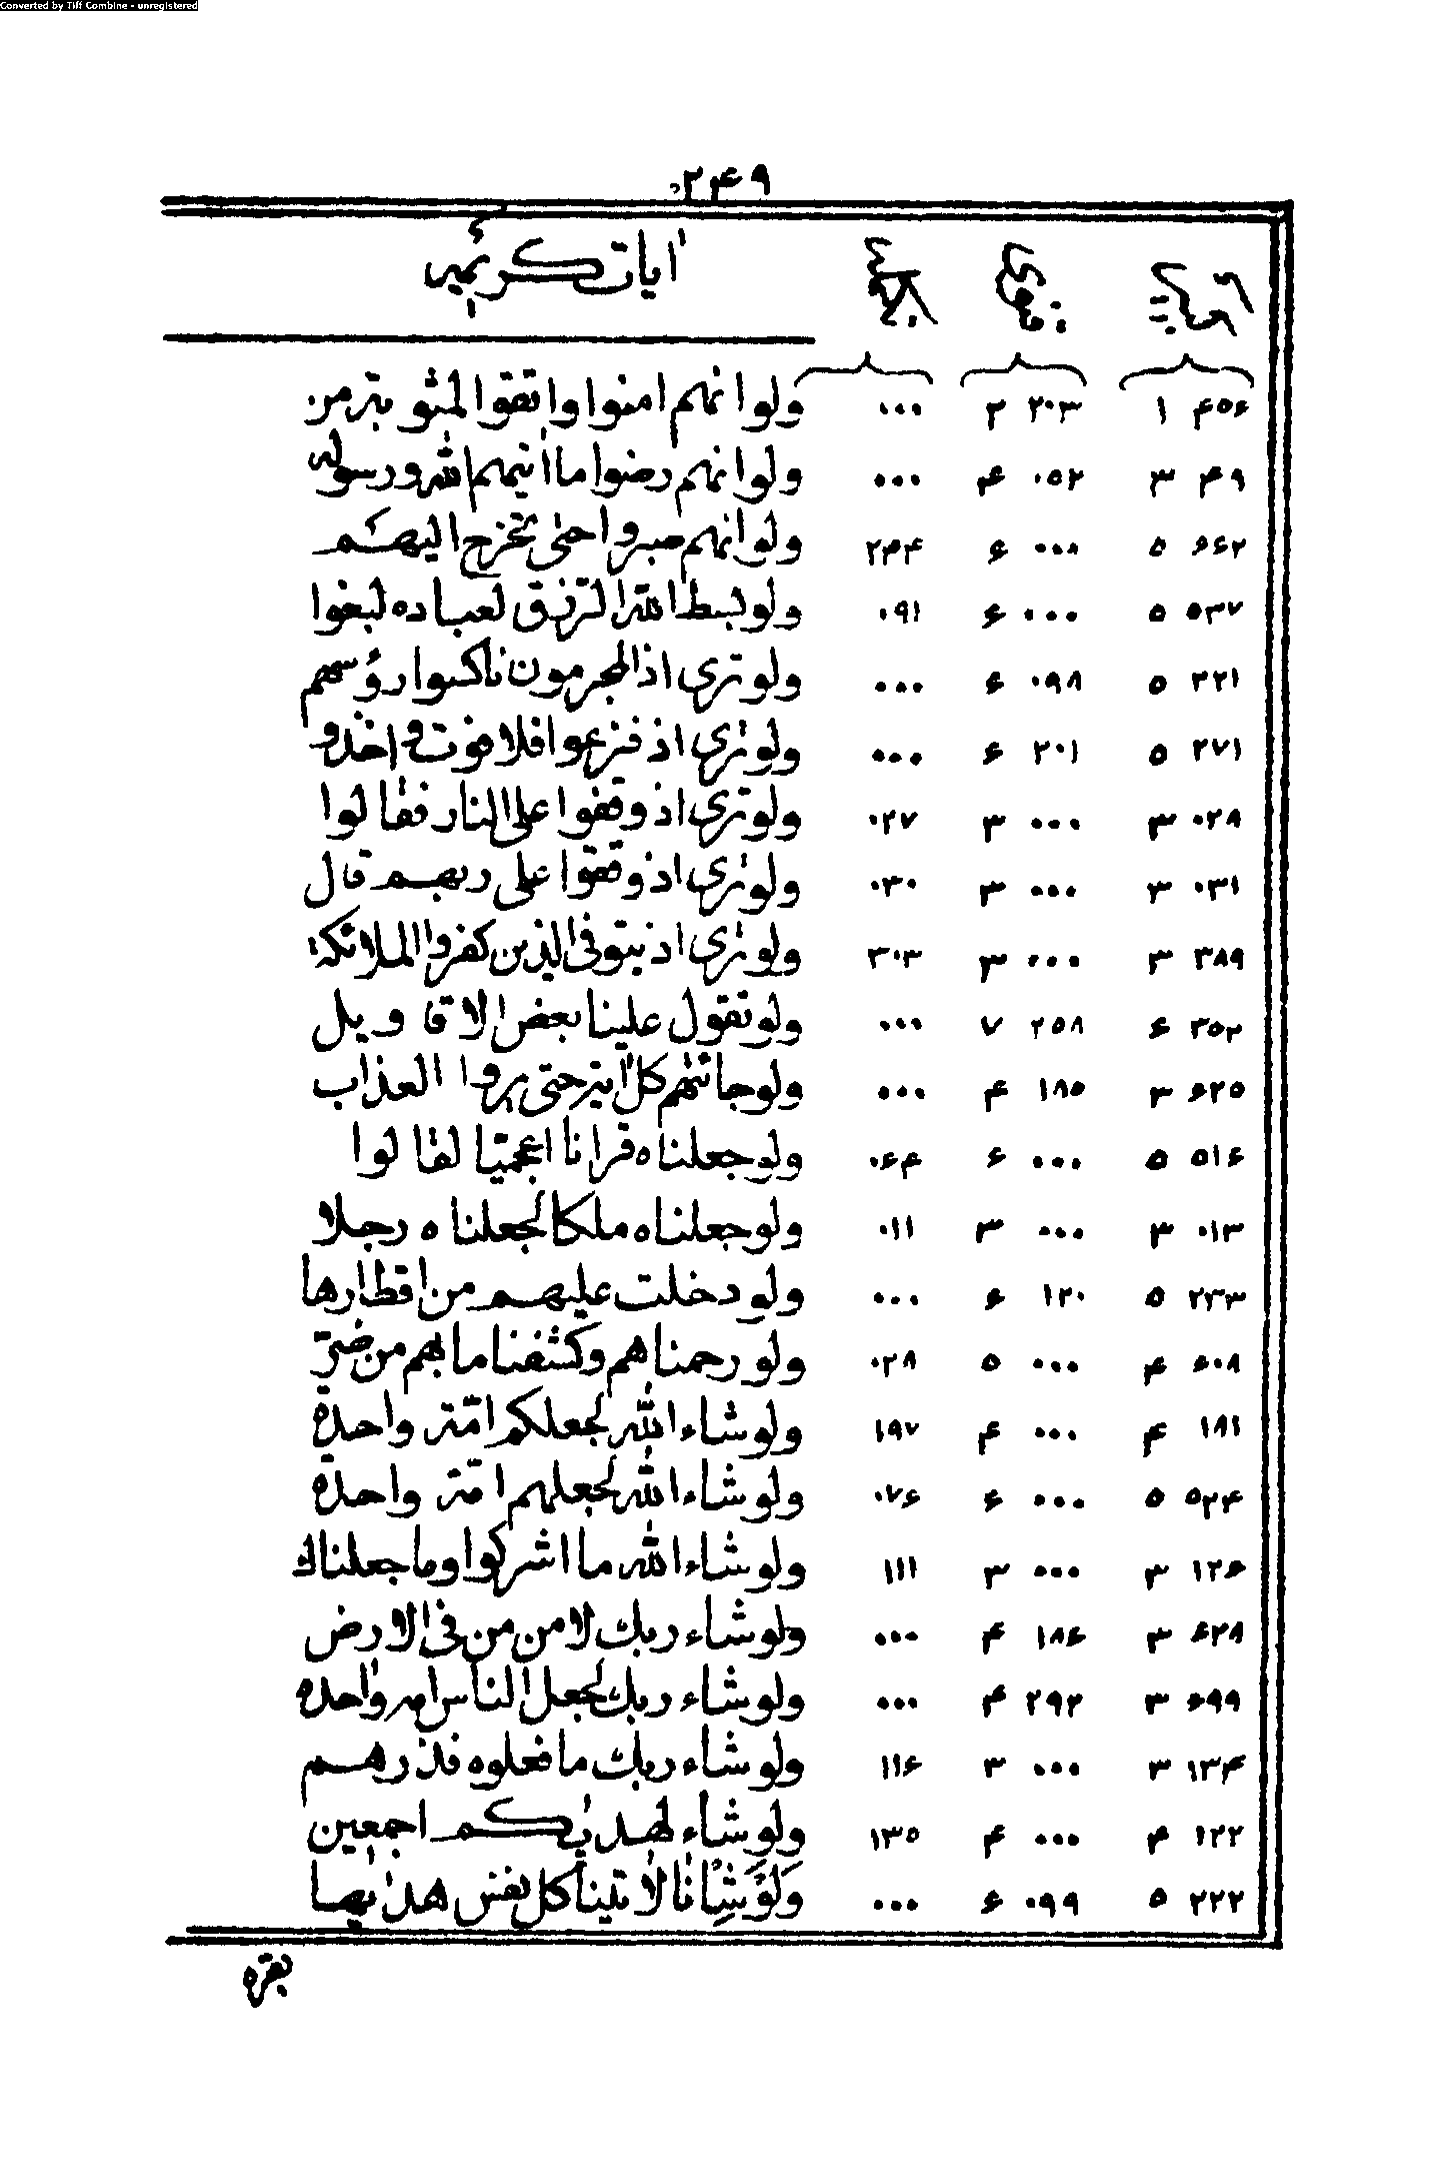 Converted by Tiff Combine - unregistered
۲۴۹
ایات کریمه
۴۵۶ ۱ ۲۰۳ ۲ ۰۰۰ ولوانهم امنوا واتقوا لمثوبة من
۴۹ ۳ ۰۵۲ ۴ ۰۰۰ ولوانهم رضوا ما اتیهم الله ورسوله
۶۶۲ ۵ ۰۰۰ ۶ ۲۴۴ ولوانهم صبروا حتی تخرج الیهم
۵۳۷ ۵ ۰۰۰ ۶ ۰۹۱ ولو بسط الله الرزق لعباده لبغوا
۲۲۱ ۵ ۰۹۸ ۶ ۰۰۰ ولو تری اذ المجرمون ناکسوا رؤسهم
۲۷۱ ۵ ۲۰۱ ۶ ۰۰۰ ولو تری اذ فزعوا فلا فوت واخذو
۰۲۹ ۳ ۰۰۰ ۳ ۰۲۷ ولو تری اذ وقفوا علی النار فقالوا
۰۳۱ ۳ ۰۰۰ ۳ ۰۳۰ ولو تری اذ وقفوا علی ربهم قال
۳۸۹ ۳ ۰۰۰ ۳ ۳۰۳ ولو تری اذ یتوفی الذین کفروا الملائکة
۳۵۲ ۶ ۲۵۸ ۷ ۰۰۰ ولو تقول علینا بعض الاقاویل
۶۲۵ ۳ ۱۸۵ ۴ ۰۰۰ ولو جائتهم کل ایة حتی یروا العذاب
۵۱۶ ۵ ۰۰۰ ۶ ۰۶۴ ولو جعلناه قرانا اعجمیّا لقالوا
۰۱۳ ۳ ۰۰۰ ۳ ۰۱۱ ولو جعلناه ملکا لجعلناه رجلا
۲۳۳ ۵ ۱۲۰ ۶ ۰۰۰ ولو دخلت علیهم من اقطارها
۶۰۸ ۴ ۰۰۰ ۵ ۰۲۸ ولو رحمناهم وکشفنا ما بهم من ضرّ
۱۸۱ ۴ ۰۰۰ ۴ ۱۹۷ ولو شاء الله لجعلکم امّة واحدة
۵۲۴ ۵ ۰۰۰ ۶ ۰۷۶ ولو شاء الله لجعلهم امّة واحدة
۱۲۶ ۳ ۰۰۰ ۳ ۱۱۱ ولو شاء الله ما اشرکوا وما جعلناك
۶۲۸ ۳ ۱۸۶ ۴ ۰۰۰ ولو شاء ربك لامن من فی الارض
۶۹۹ ۳ ۲۹۲ ۴ ۰۰۰ ولو شاء ربك لجعل الناس امة واحده
۱۳۴ ۳ ۰۰۰ ۳ ۱۱۶ ولو شاء ربك ما فعلوه فذرهم
۱۲۲ ۴ ۰۰۰ ۴ ۱۳۵ ولو شاء لهدیکم اجمعین
۲۲۲ ۵ ۰۹۹ ۶ ۰۰۰ وَلَوْ شِئْنَا لاتینا کل نفس هدیها
بقره